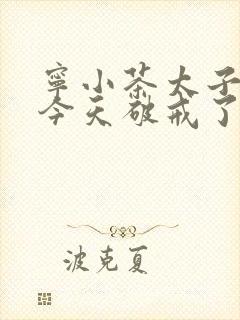 寧小茶太子
今天破戒了
波克夏